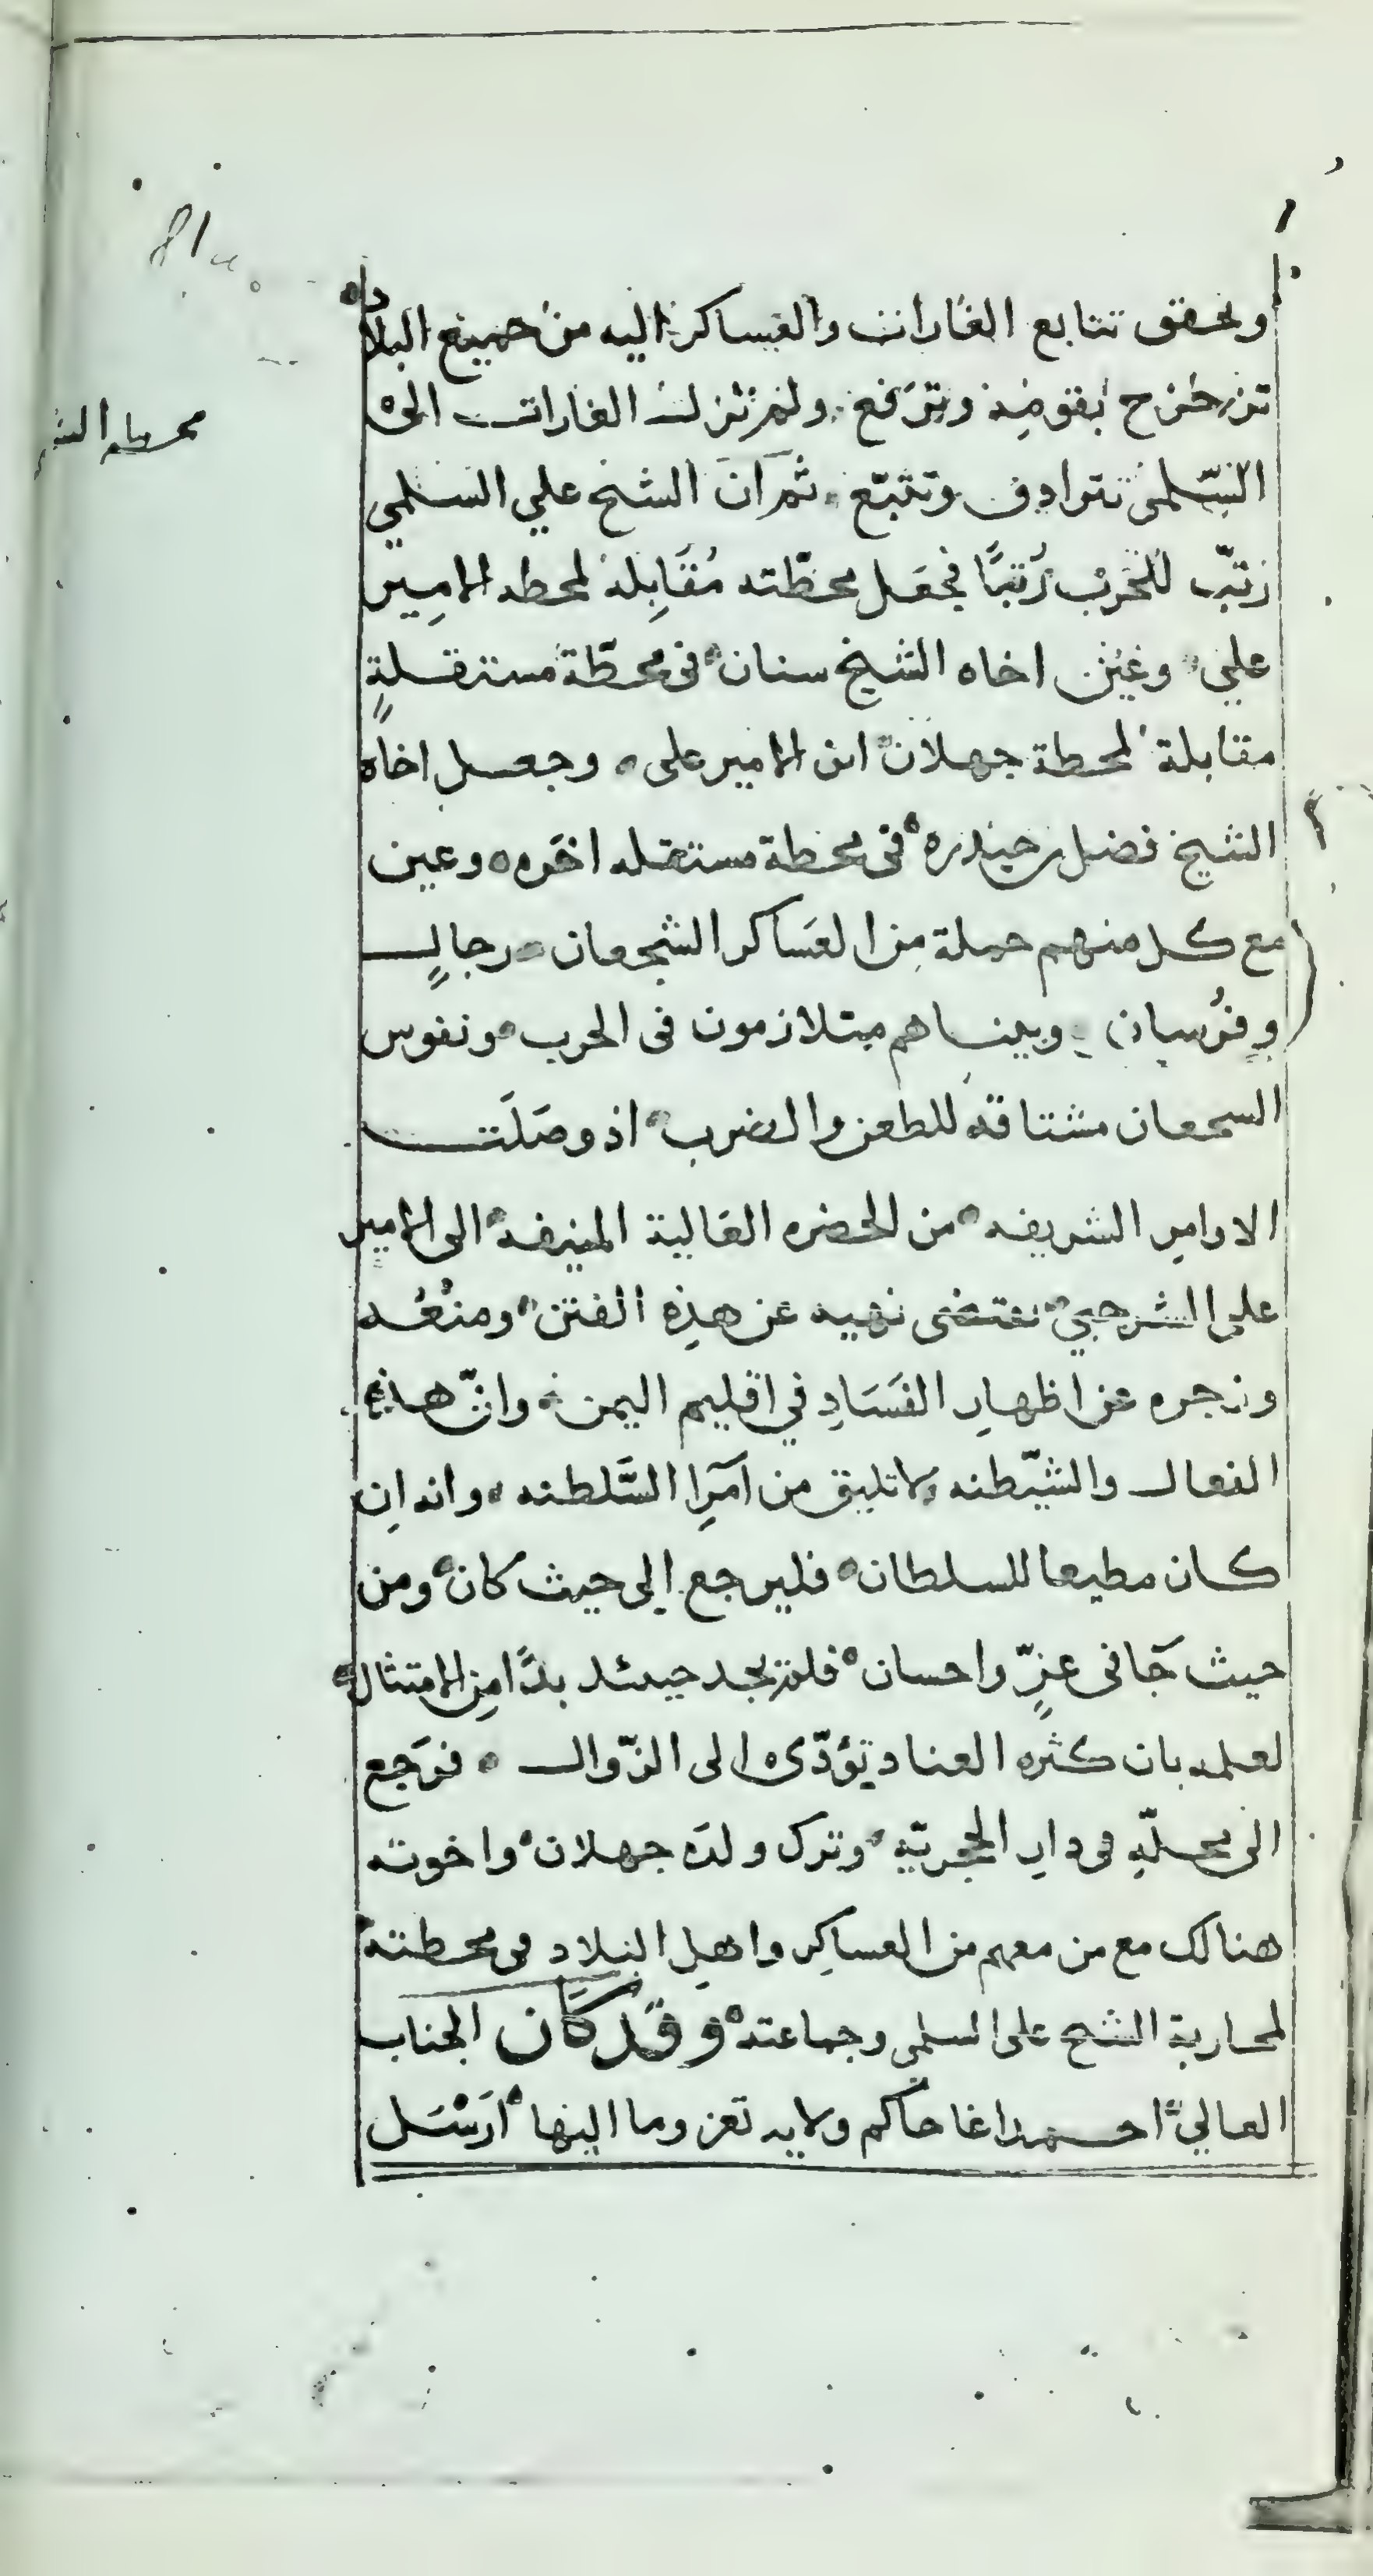 وتحقق تتابع الغارات والعساكر اليه من جميع البلاد
تزحزح بقومه وترفع ولم تزل الغارات الى
السلمي تترادف وتتبع ثم ان الشيخ علي السلمي
رتّب للحرب رُتبًا فجعل محطّته مُقَابِلة لمحطه الامِير
علي وعين اخاه الشيخ سنان في محطّة مستقلةٍ
مقابلة لمحطة جهلان ابن الامير على وجعل اخاه
الشيخ فضل حيدره في محطة مستقله اخره وعين
مع كل منهم جملة من العسَاكر الشجعان رجالٍ
وفُرسان وبينما هم متلازمون فى الحرب ونفوس
السجعان مشتاقه للطعن والضرب اذ وصَلَت
الاوامِر الشريفه من الحضره العالية المنيفه الى الامير
على الشرجبي تقتضى نهيه عن هذِه الفتن ومنْعُه
وزجره عن اظهارِ الفسَادِ في اقليم اليمن وانّ هذه
الفعال والشيطنه لا تليق من امَرِا السَّلطنه وانه ان
كان مطيعا للسلطان فليرجع إلى حيث كان ومن
حيث جَا فى عزٍّ واحسان فلم يجد حينئد بدًّا من الامتثال
لعلمه بان كثره العناد تؤدّى الى الزّوال فرَجع
الى محلّهِ فى دارِ الحجريّه وترك ولدَه جهلان واخوته
هنالك مع من معهم من العساكِر واهلِ البلاد فى محطته
لمحاربة الشيخ على السلمي وجماعته وقد كَان الجناب
العالي احمد اغا حاكم ولايه تعز وما اليها ارَسْل